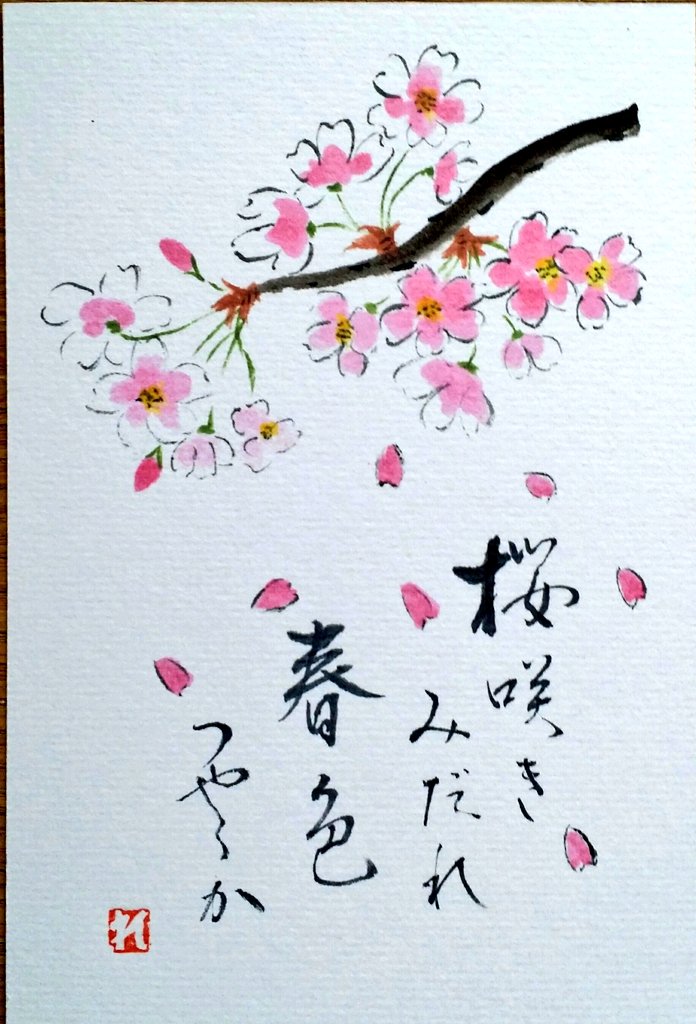 桜咲き
みだれ
春色
つやゝか